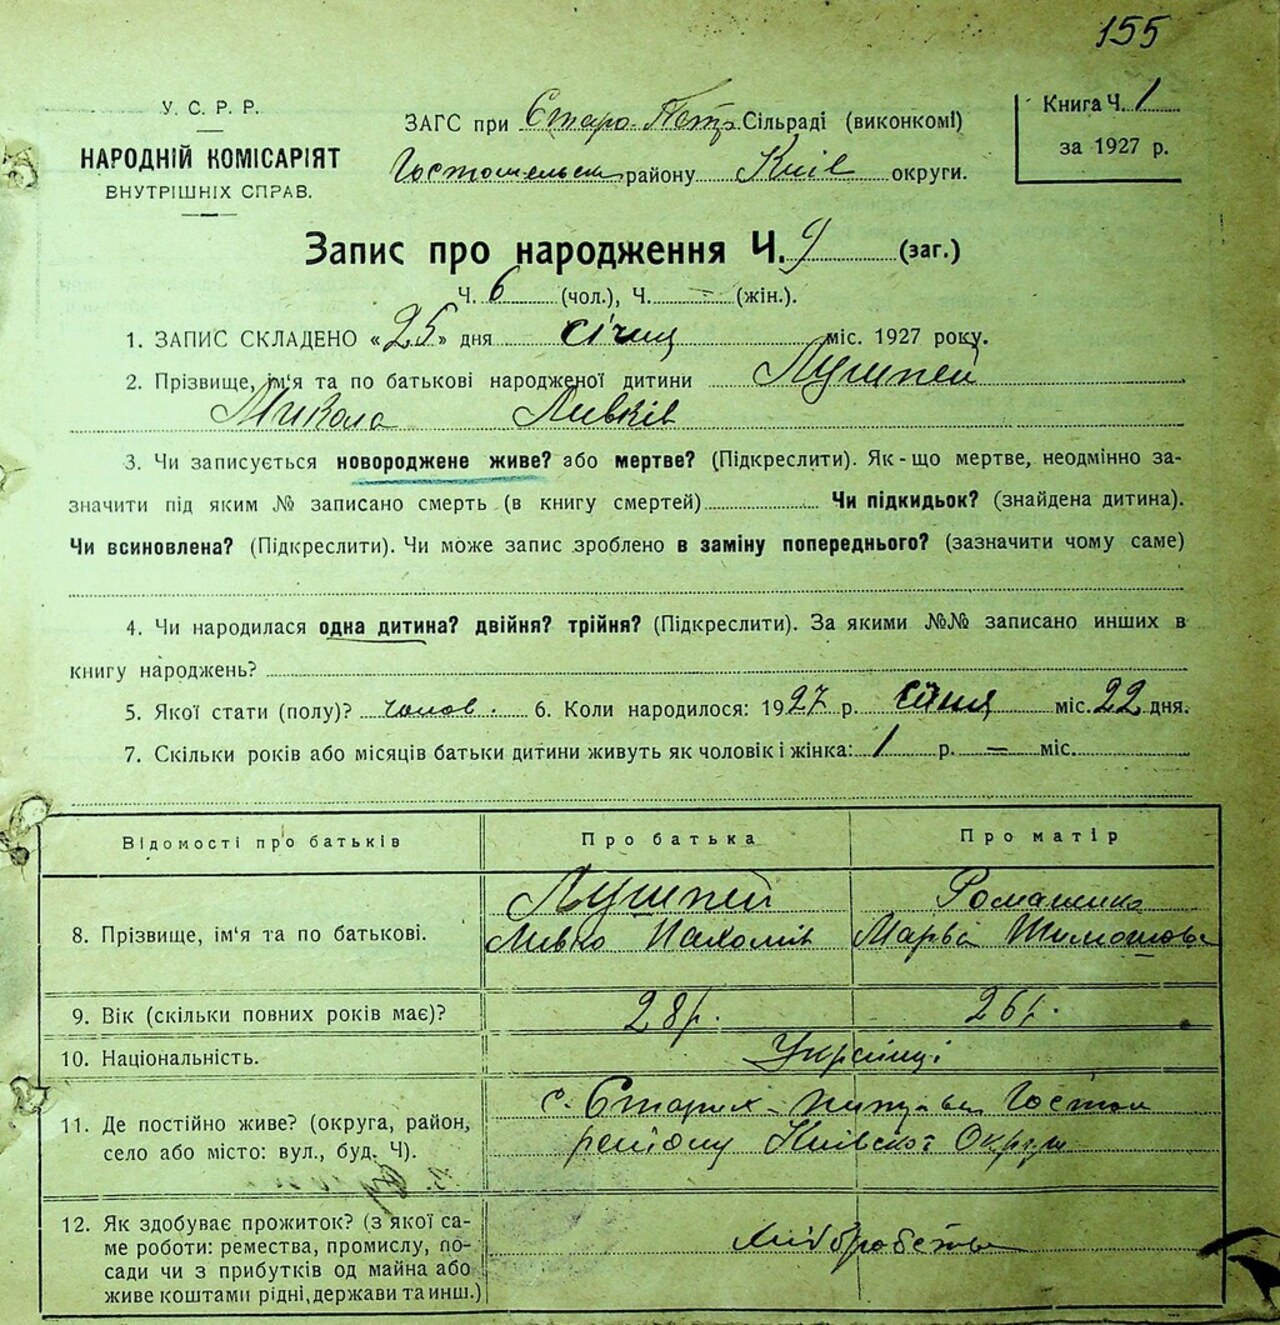 155
У. С. Р. Р.
НАРОДНІЙ КОМІСАРІЯТ
ВНУТРІШНІХ СПРАВ.
ЗАГС при Старо-Петр. Сільраді (виконкомі)
Гостомельськ району Київ округи.
Книга Ч. 1
за 1927 р.
Запис про народження Ч. 9 (заг.)
Ч. 6 (чол.), Ч. = (жін.).
1. ЗАПИС СКЛАДЕНО «25» дня січня міс. 1927 року.
2. Прізвище, ім‘я та по батькові народженої дитини Лушпей
Микола Левків
3. Чи записується новороджене живе? або мертве? (Підкреслити). Як-що мертве, неодмінно за-
значити під яким № записано смерть (в книгу смертей) Чи підкидьок? (знайдена дитина).
Чи всиновлена? (Підкреслити). Чи може запис зроблено в заміну попереднього? (зазначити чому саме)
4. Чи народилася одна дитина? двійня? трійня? (Підкреслити). За якими №№ записано инших в
книгу народжень?
5. Якої стати (полу)? чолов. 6. Коли народилося: 1927 р. січня міс. 22 дня.
7. Скільки років або місяців батьки дитини живуть як чоловік і жінка: 1 р. = міс.
Відомості про батьків Про батька Про матір
8. Прізвище, ім‘я та по батькові.
Лушпей Ромашенко
Левко Пахомів Марвя Тимошова
9. Вік (скільки повних років має)? 28 р. 26 р.
10. Національність. Українці
11. Де постійно живе? (округа, район,
село або місто: вул., буд. Ч).
с. Старих-Петрівці Гостом
району Київської Округи
12. Як здобуває прожиток? (з якої са-
ме роботи: ремества, промислу, по-
сади чи з прибутків од майна або
живе коштами рідні, держави та инш.)
Хліборобство